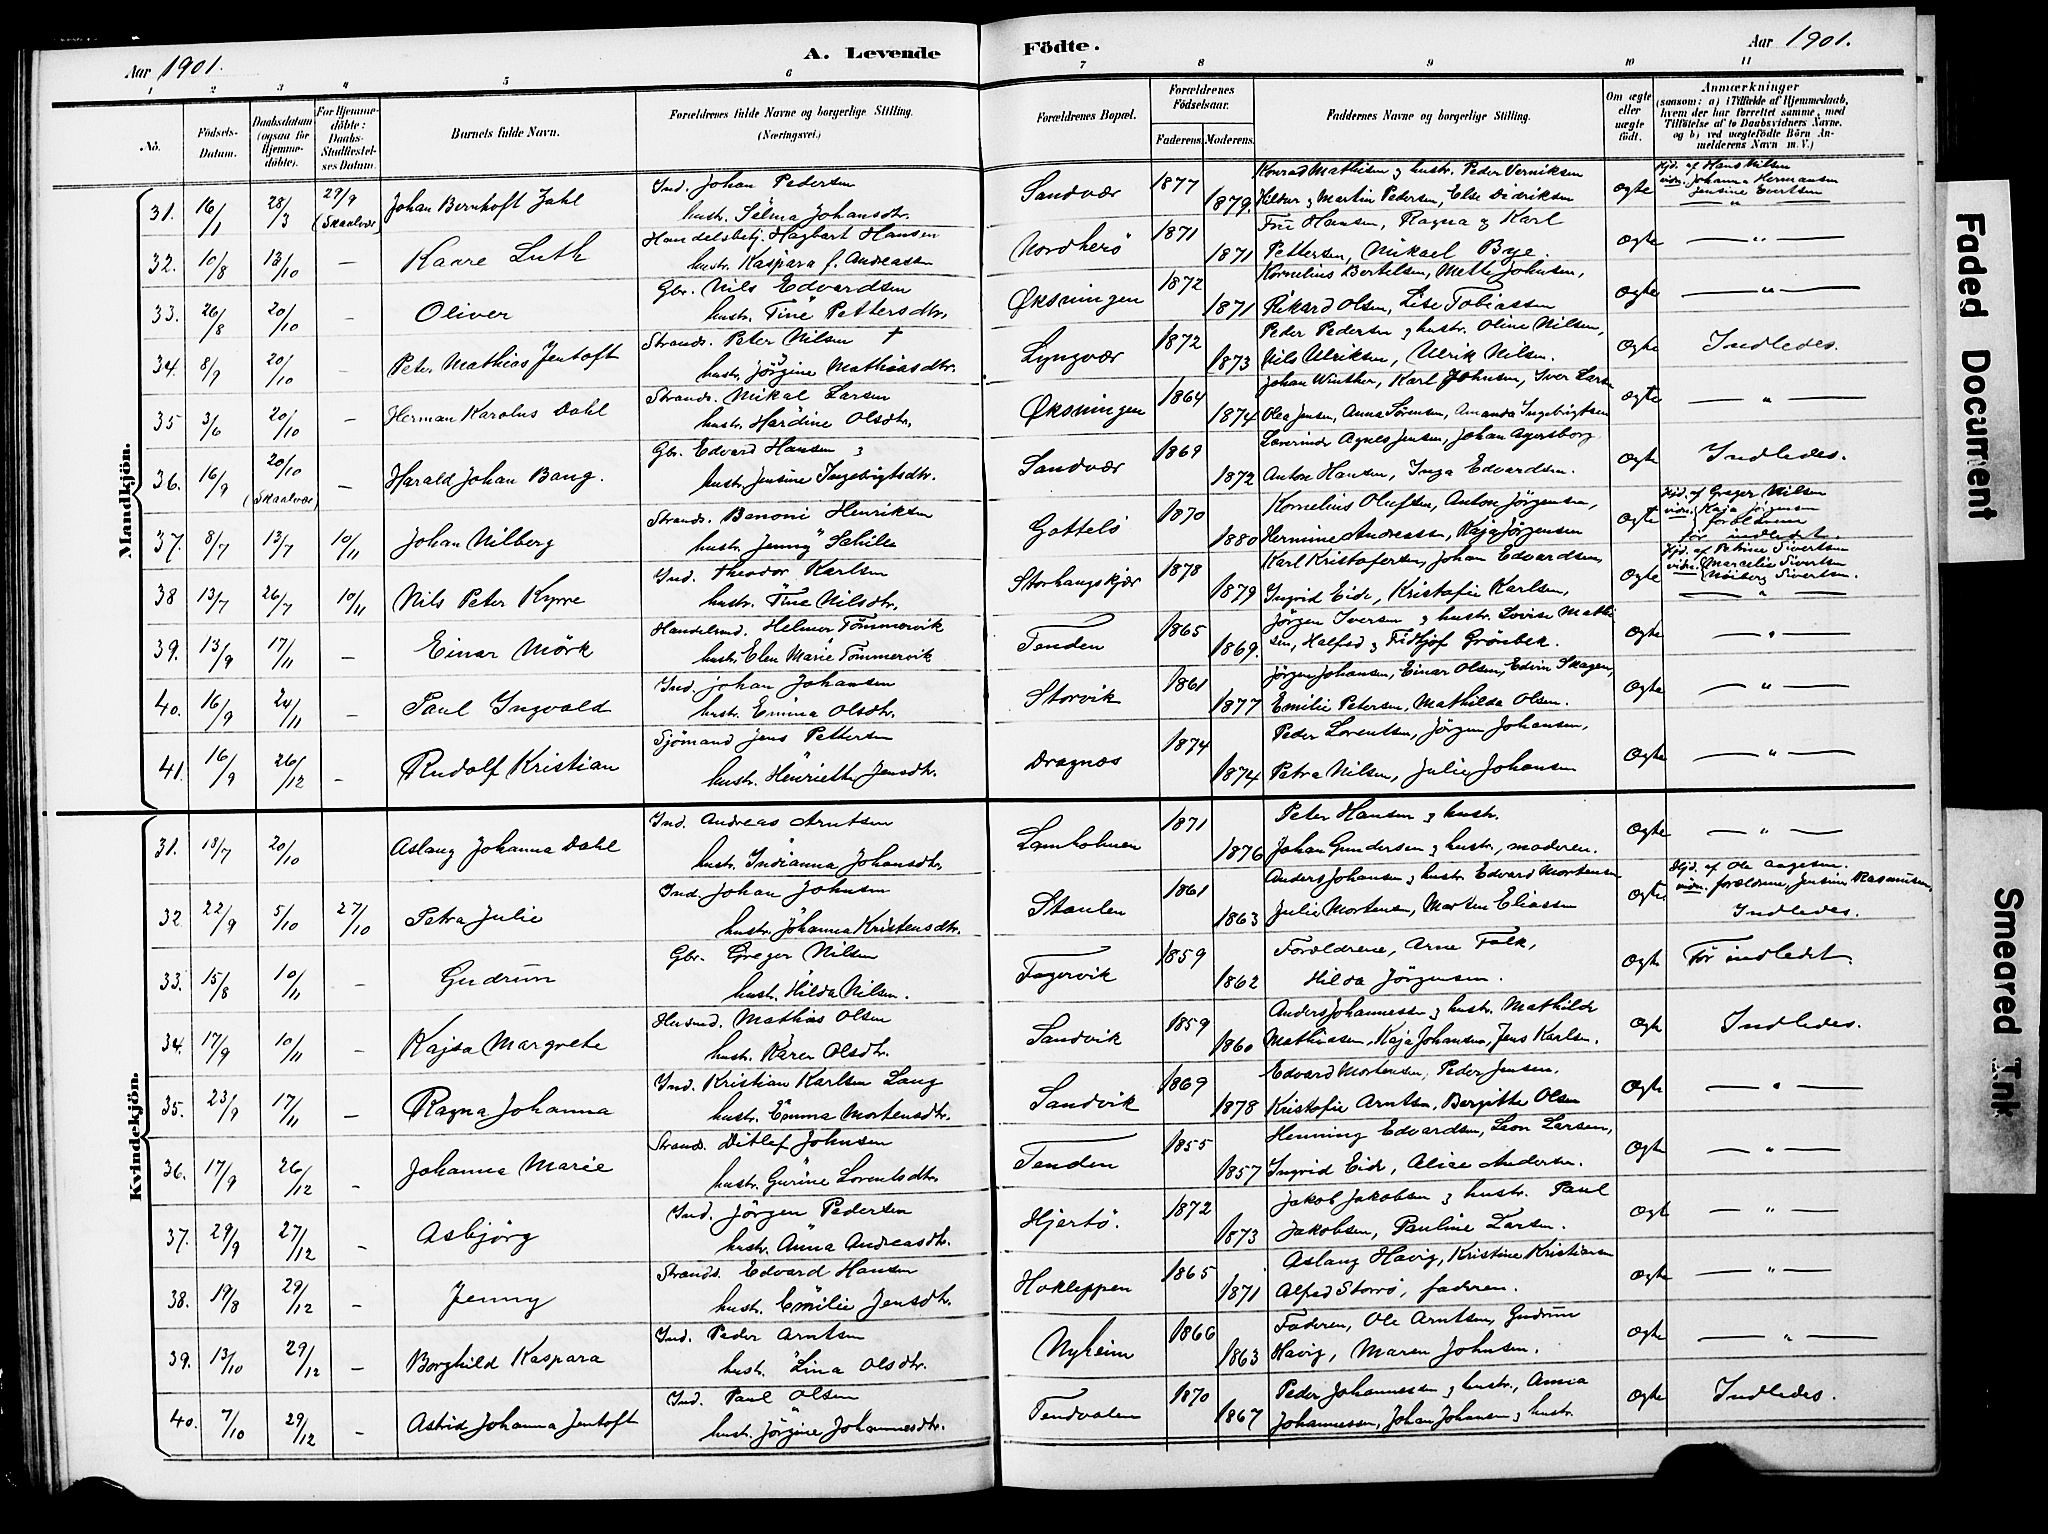 Aar 1901. A. Levende Födte. Aar 1901.
1 2 3 4 5 6 7 8 9 10 11
No. Födsels-Datum. Daabsdatum (ogsaa for Hjemmedöbte). For Hjemmedöbte: Daabs-Stadfæstelses Datum. Barnets fulde Navn. Forældrenes fulde Navne og borgerlige Stilling. (Næringsvei.) Forældrenes Bopæl. Forældrenes Födselsaar. Faderens. Moderens. Faddernes Navne og borgerlige Stilling. Om ægte eller uægte födt. Anmærkninger (saasom: a) i Tilfælde af Hjemmedaab, hvem der har forrettet samme, med Tilföielse af to Daabsvidners Navne. og b) ved uægtefödte Börn Anmelderens Navn m. V.)
Mandkjön.
31. 16/1 28/3 29/9 (Skaalvær) Johan Bernhoft Jahl Ind. Johan Pedersen hustr. Selma Johansdtr. Sandvær 1877 1879. Konrad Mathisen & hustr. Peder Verniksen Hildur & Martin Pedersen, Else Didriksen Ægte Hjd. af Hans Nilsen vidn. Johanna Hermansen Jensine Evertsen
32. 10/8 13/10 - Kaare Luth Handelsbetj. Hagbart Hansen hustr. Kaspara f. Andreassen Nordherö 1871 1871 Fru Hansen, Ragna & Karl Pettersen, Mikael Bye Ægte — " —
33. 26/8 20/10 - Oliver Gbr. Nils Edvardsen hustr. Tine Pettersdtr. Øksningen 1872 1871 Kornelius Bertilsen, Mette Johnsen, Rikard Olsen, Lise Tobiassen Ægte — " —
34. 8/9 20/10 - Peter Mathias Jentoft Strands. Peter Nilsen † hustr. Jörgine Mathiasdtr. Lyngvær 1872 1873 Peder Pedersen & hustr. Oline Nilsen, Nils Ulriksen, Ulrik Nilsen. Ægte Indledes.
35 3/6 20/10 - Herman Karolus Dahl Strands. Mikal Larsen hustr. Hardine Olsdtr. Øksningen 1864 1874 Johan Winther, Karl Johnsen, Iver Larsen Olea Jensen, Anna Sörensen, Amanda Ingebrigtsen Ægte — " —
36. 16/9 20/10 (Skaalvær) - Harald Johan Bang. Gbr. Edvard Hansen & hustr. Jensine Ingebrigtsdtr. Sandvær 1869 1872 Lærerinde Agnes Jensen, Johan Agersborg Anton Hansen, Inga Edvardsen. Ægte Indledes.
37. 8/7 13/7 10/11 Johan Nilberg Strands. Benoni Henriksen hustr. Jenny Schille Gotteló 1870 1880 Kornelius Olufsen, Anton Jörgensen, Hermine Andreassen, Kaja Jörgensen Ægte Hjd. af Greger Nilsen vidn. Kaja Jörgensen forældrene för indledet.
38 13/7 26/7 10/11 Nils Peter Kyrre Ind. Theodor Karlsen hustr. Tine Nilsdtr. Storhaugskjær 1878 1879 Karl Kristofersen, Johan Edvardsen, Ingrid Eide, Kristofie Karlsen, Ægte Hjd. af Petrine Sivertsen vidn. Marcelie Sivertsen Sivertsen. — " —
39. 13/9 17/11 - Einar Mörk Handelsmd. Helmer Tömmervik hustr. Elen Marie Tömmervik Tenden 1865 1869. Jörgen Iversen & hustr. Lovise Mathisen, Halfred & Fridtjof Grönbek. Ægte — " —
40. 16/9 24/11 - Paul Ingvald Ind. Johan Johansen hustr. Emma Olsdtr. Storvik 1861 1877 Jörgen Johansen, Einar Olsen, Edvin Skagen, Emilie Petersen, Mathilda Olsen. Ægte — " —
41. 16/9 26/12 - Rudolf Kristian Sjömand Jens Pettersen hustr. Henriette Jensdtr. Dragnæs 1874 1874 Peder Lorentsen, Jörgen Johansen, Petra Nilsen, Julie Johansen Ægte — " —
Kvindekjön.
31. 13/7 20/10 Aslaug Johanna Dahl Ind. Andreas Arntsen hustr. Indianna Johansdtr. Lamholmen 1871 1876 Peter Hansen & hustr. Johan Gundersen & hustr, moderen. Ægte — " —
32 22/9 5/10 27/10 Petra Julie Ind. Johan Johnsen hustr. Johanna Kristensdtr. Staulen 1861 1863 Anders Johansen & hustr. Edvard Mortensen Julie Mortensen, Morten Eliassen Ægte Hjd. af Ole Aagesen. vidn. forældrene, Jensine Rasmussen, Indledes.
33. 15/8 10/11 - Gudrun Gbr. Greger Nilsen hustr. Hilda Nilsen. Fagervik 1859 1862 Forældrene, Arne Falk, Hilda Jörgensen. Ægte För indledet.
34. 17/9 10/11 - Kajsa Margrete Husmd. Mathias Olsen hustr. Karen Olsdtr. Sandvik 1859 1860 Anders Johannessen & hustr. Mathilde Mathiassen, Kaja Johansen, Jens Karlsen. Ægte Indledes.
35. 23/9 17/11 - Ragna Johanna Ind. Kristian Karlsen Lang hustr. Emma Mortensdtr. Sandvik 1869 1878 Edvard Mortensen, Peder Jensen, Kristofie Arntsen, Bergitte Olsen Ægte — " —
36. 17/9 26/12 - Johanna Marie Strands. Ditlef Johnsen hustr. Gurine Lorentsdtr. Tenden 1855 1857 Henning Edvardsen, Leon Larsen, Ingrid Eide, Alice Andersen. Ægte — " —
37. 29/9 27/12 - Asbjörg Ind. Jörgen Pedersen hustr. Anna Andreasdtr. Hjertö. 1872 1873 Jakob Jakobsen & hustr. Paul Jakobsen, Pauline Larsen. Ægt — " —
38. 19/8 29/12 - Jenny Strands. Edvard Hansen hustr. Emilie Jensdtr. Hokleppen 1865 1871 Aslaug Havig, Kristine Kristiansen Alfred Storrö, faderen. Ægte — " —
39. 13/10 29/12 - Borghild Kaspara Ind. Peder Arntsen hustr. Lina Olsdtr. Nyheim 1866 1863 Faderen, Ole Arntsen, Gudrun Havig, Maren Johnsen. Ægte — " —
40. 7/10 29/12 - Astrid Johanna Jentoft Ind. Paul Olsen hustr. Jörgine Johannesdtr. Tendvalen 1870 1867 Peder Johannessen & hustr, Anna Johannessen, Johan Johansen & hustr. Ægte Indledes.
Faded Document
Smeared Ink